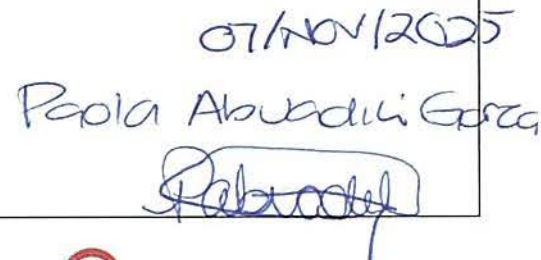 07/NOV/2025
Paola Abuadili Garza